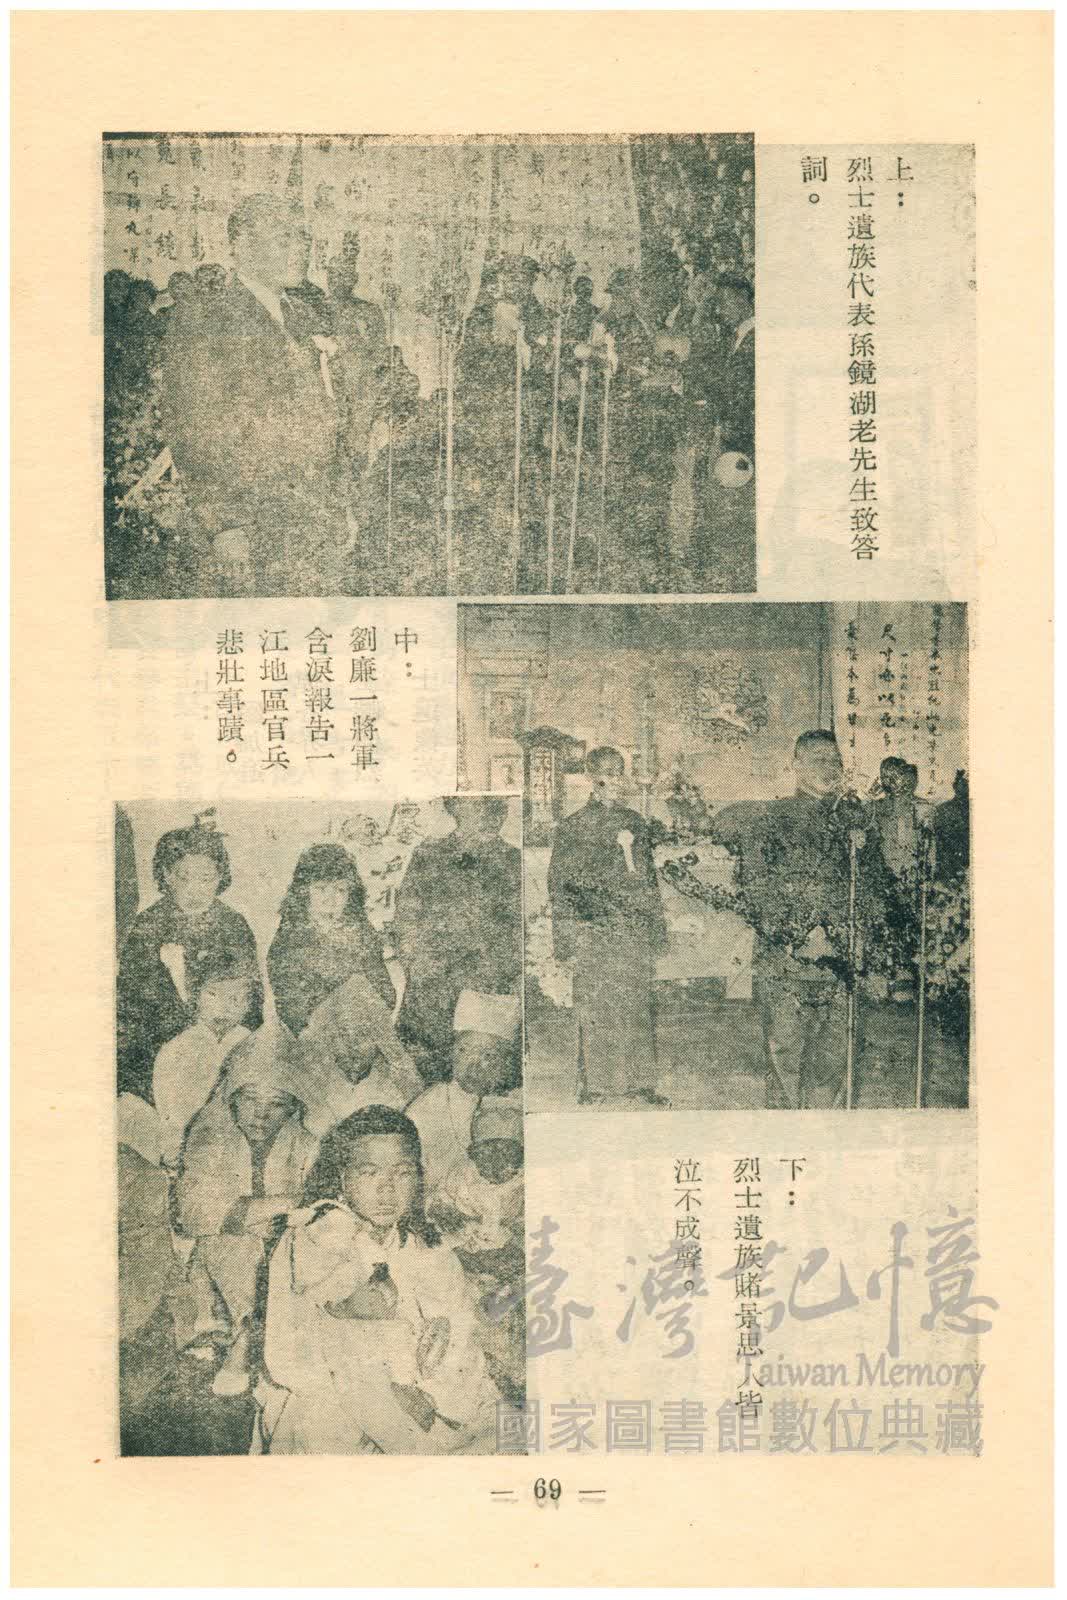 上：
烈士遺族代表孫鏡湖老先生致答
詞。
中：
劉廉一將軍
含淚報告一
江地區官兵
悲壯事蹟。
下：
烈士遺族賭景思人皆
泣不成聲。
臺灣記憶
Taiwan Memory
國家圖書館數位典藏
— 69 —